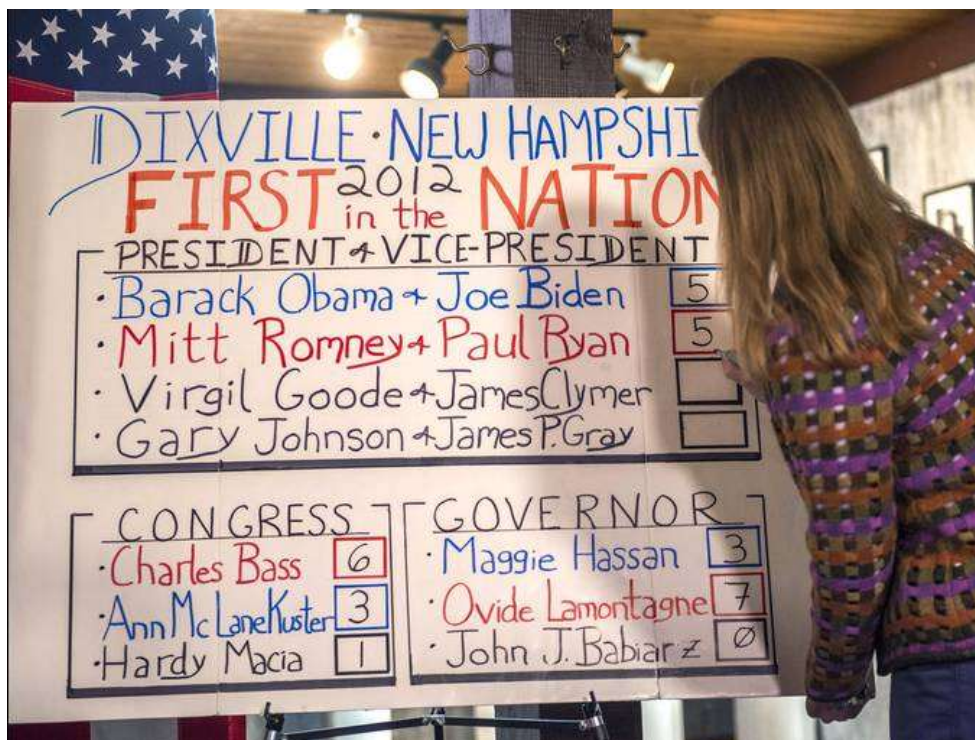 DIXVILLE · NEW HAMPSHI
FIRST 2012 in the NATION
PRESIDENT & VICE-PRESIDENT
· Barack Obama & Joe Biden 5
· Mitt Romney & Paul Ryan 5
· Virgil Goode & James Clymer
· Gary Johnson & James P. Gray
CONGRESS
· Charles Bass 6
· Ann McLane Kuster 3
· Hardy Macia 1
GOVERNOR
· Maggie Hassan 3
· Ovide Lamontagne 7
· John J. Babiarz 0